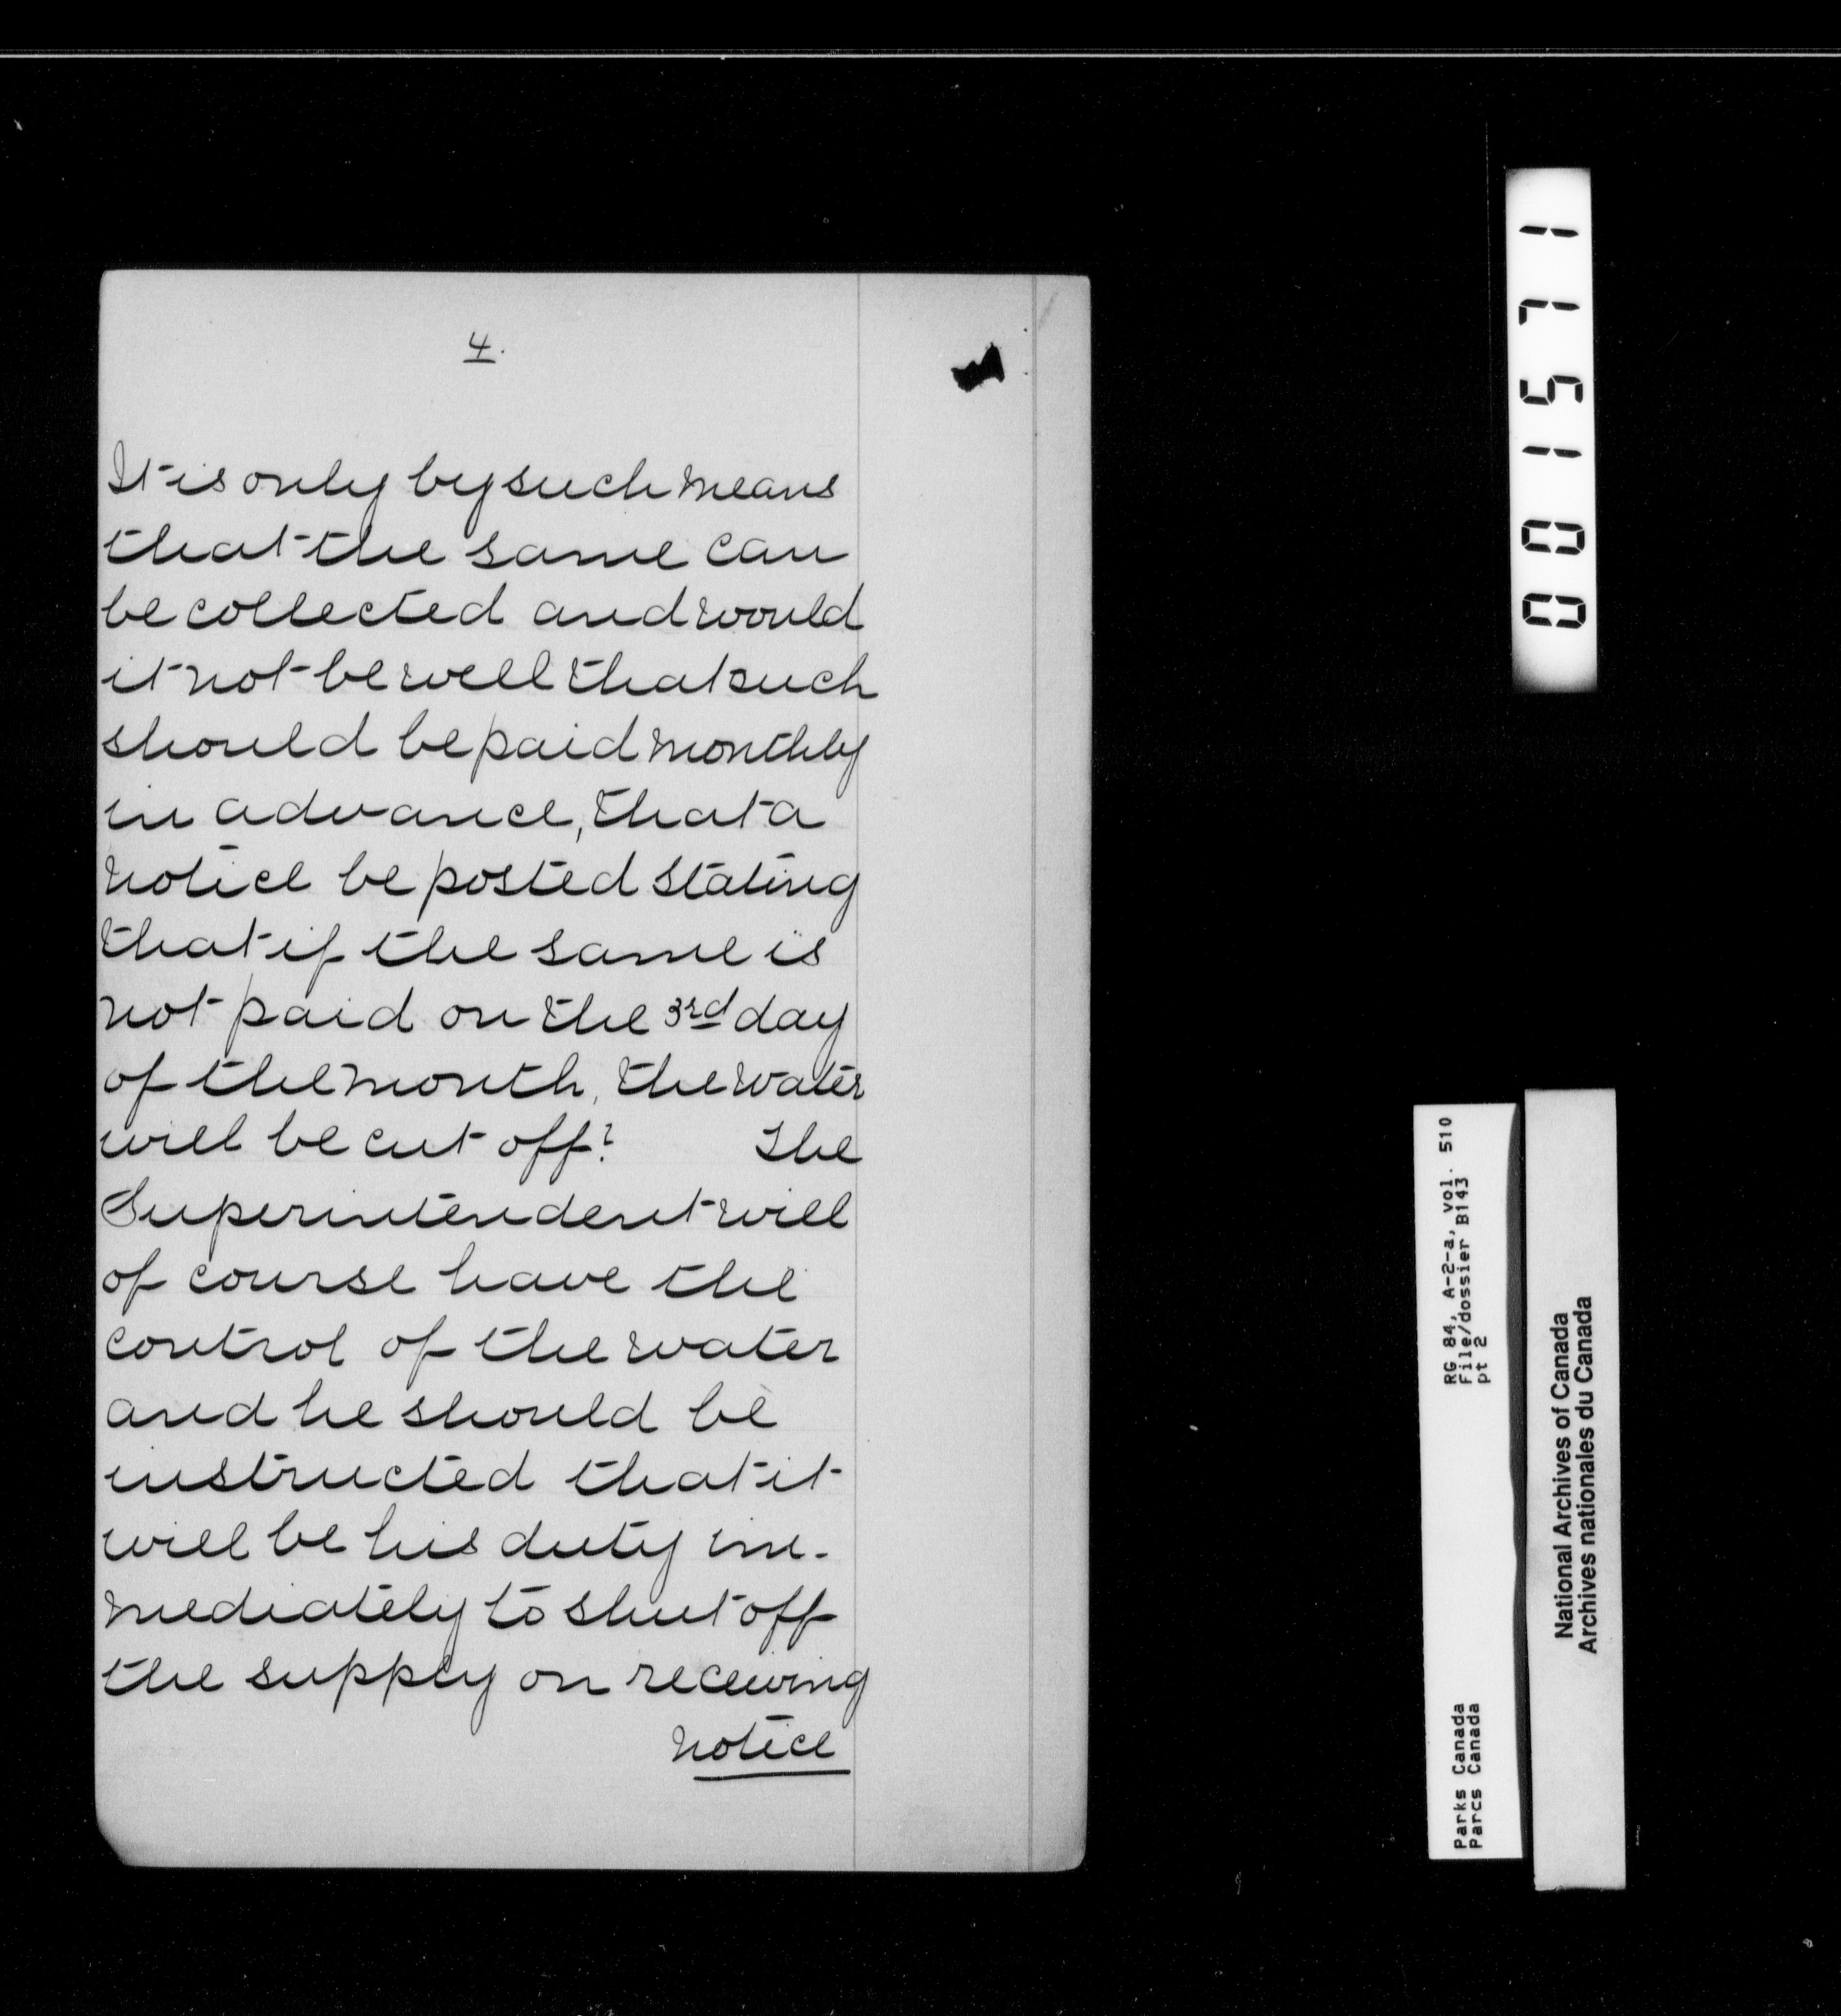 4.
It is only by such means
that the same can
be collected and would
it not be well that such
should be paid monthly
in advance, that a
notice be posted stating
that if the same is
not paid on the 3rd day
of the month, the water
will be cut off? The
Superintendent will
of course have the
control of the water
and he should be
instructed that it
will be his duty im-
mediately to shut off
the supply on receiving
notice
001571
RG 84, A-2-a, vol. 510
File/dossier B143
pt 2
Parks Canada
Parcs Canada
National Archives of Canada
Archives nationales du Canada